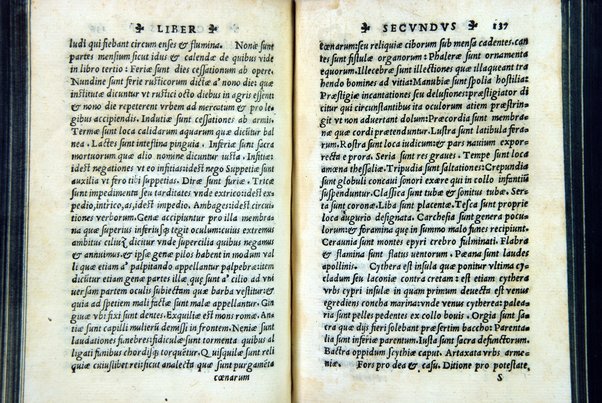 LIBER
ludi qui fiebant circum enses & flumina. Nonæ sunt
partes mensium sicut idus & calendæ de quibus vide
in libro tertio: Feriæ sunt dies cessationum ab opere.
Nundinæ sunt feriæ rusticorum dictæ a nono die: quæ
institutæ dicuntur vt rustici octo diebus in agris essent
& nono die repeterent vrbem ad mercatum & pro le
gibus accipiendis. Indutiæ sunt cessationes ab armis.
Termæ sunt loca calidarum aquarum quæ dicūtur bal
nea. Lactes sunt intestina pinguia. Inferiæ sunt sacra
mortuorum quæ alio nomine dicuntur iusta. Infitiæ:
idest negationes vt eo infitias:idest nego Suppetiæ sunt
auxilia vt fero tibi suppetias. Diræ sunt furiæ. Tricæ
sunt impedimenta seu teneditates vnde extrico:idest ex
pedio, intrico, as, idest impedio. Ambages: idest circui
tiones verborum. Genæ accipiuntur pro illa membra
na quæ superius inferiusq; tegit oculum:cuius extremus
ambitus ciliū dicitur vnde supercilia quibus negamus
& annuimus. & ipsæ genæ pilos habent in modum val
li quæ etiam a palpitando appellantur palpebræ: item
dicūtur etiam genæ partes illæ quæ sunt a cilio ad vni
uersam partem oculis subiectam quæ barba vestitur: &
quia ad speciem mali factæ sunt malæ appellantur. Gin
giuæ vbi fixi sunt dentes. Exquiliæ est mons romæ. An
tiæ sunt capilli mulierū demissi in frontem. Neniæ sunt
laudationes funebres: fidiculæ sunt tormenta quibus al
ligati finibus chordisq; torquētur. Quisquilæ sunt
quicquid fuisti reicitur analecta quæ sunt purgamēta
cœnarum
SECVNDVS 137
cœnarum:seu reliquiæ ciborum sub mensa cadentes.can
tes sunt fistulæ organorum: Phaleræ sunt ornamenta
equorum. Illecebræ sunt illectiones quæ illaqueant tra
hendo homines ad vitia: Manubiæ sunt spolia hostilia:
Præstigiæ incantationes seu delusiones: præstigiator di
citur qui circunstantibus ita oculorum aciem præstrin
git vt non aduertant dolum: Præcordia sunt membra
næ quæ cordi prætenduntur. Lustra sunt latibula fera
rum. Rostra sunt loca iudicum: & pars nauium expor
recta e prora. Seria sunt res graues. Tempe sunt loca
amœna thessaliæ. Tripudia sunt saltationes: Crepundia
sunt globuli concaui sonori exare qui in collo infantiū
suspenduntur. Classica sunt tubæ & sonitus tubæ. Ser
ta sunt coronæ. Liba sunt placentæ. Tesca sunt propriæ
loca augurio designata. Carchesia sunt genera pocu
lorum: & foramina quæ in summo malo funes recipiunt.
Ceraunia sunt montes epyri crebro fulminati. Flabra
& flamina sunt flatus uentorum. Pæana sunt laudes
apollinis. Cythera est insula quæ ponitur vltima cy
cladum seu laconiæ contra cretam: est etiam cythera
vrbs cypri insulæ in quam primum deuecta est venus
egrediens concha marina: vnde venus cytherea: palea
ria sunt pelles pedentes ex collo bouis. Orgia sunt sa
cra quæ dijs fieri solebant præsertim baccho: Parenta
lia sunt inferiæ parentum. Iusta sunt sacra defunctorum.
Bactra oppidum scythiæ caput. Artaxata vrbs arme
niæ. Fors pro dea & casu. Ditione pro potestate
S